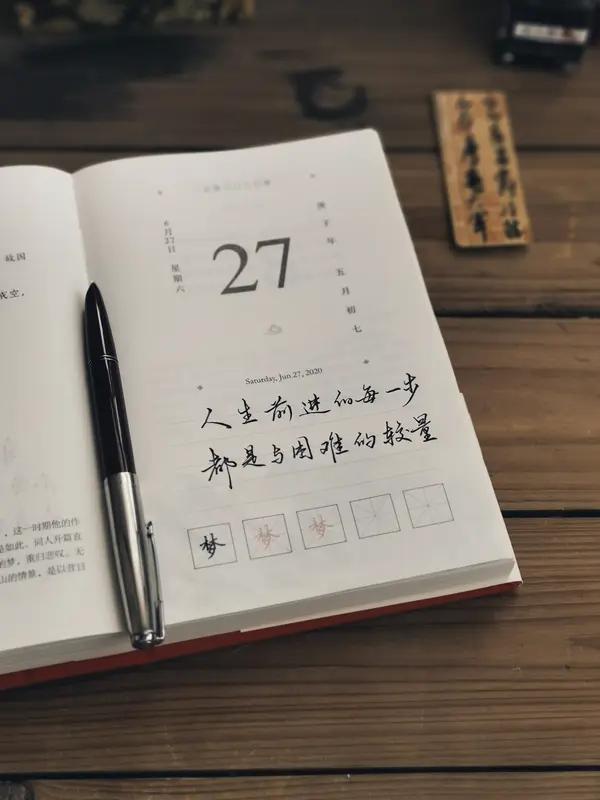 故国
成空，
，这一时期他的作
是如此。问人开篇直
的梦，重归悲叹。无
山的情景，是以昔日
6月27日 星期六
27
庚子年 五月初七
Saturday, Jun.27, 2020
人生前进的每一步
都是与困难的较量
梦 梦 梦